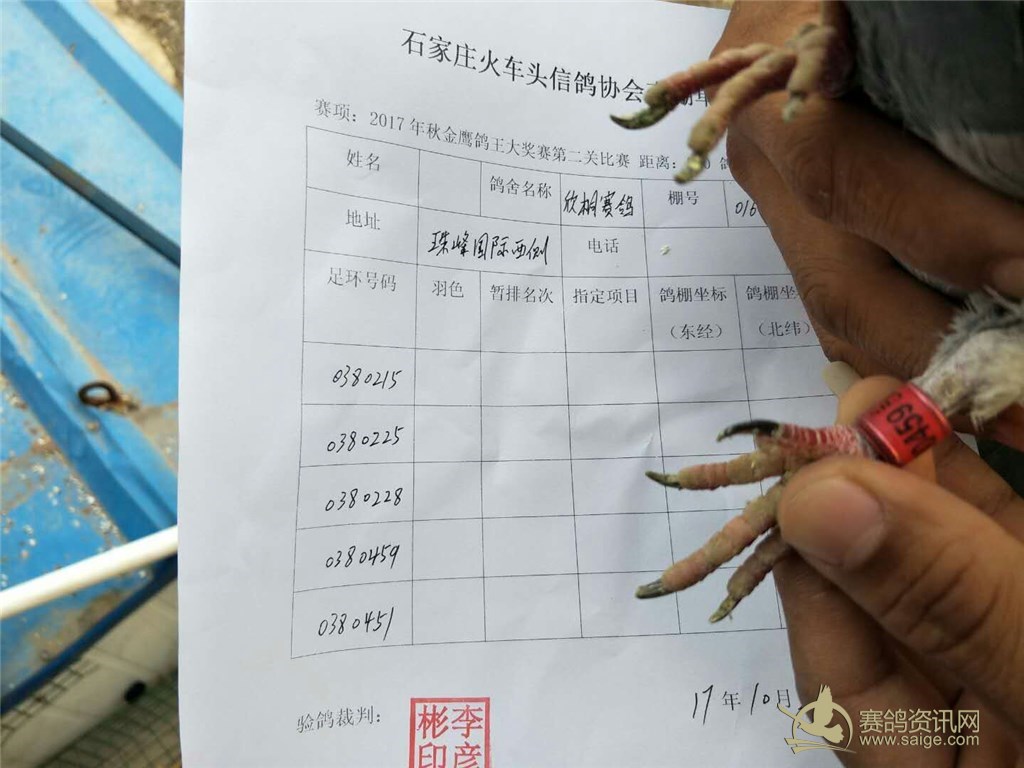 石家庄火车头信鸽协会
赛项：2017年秋金鹰鸽王大奖赛第二关比赛 距离：
姓名 鸽舍名称 欣桐赛鸽 棚号 016
地址 珠峰国际西侧 电话
足环号码 羽色 暂排名次 指定项目 鸽棚坐标（东经） 鸽棚坐（北纬）
0380215
0380225
0380228
0380459
0380451
验鸽裁判：
李彦彬印
17年10月
0459
赛鸽资讯网
www.saige.com